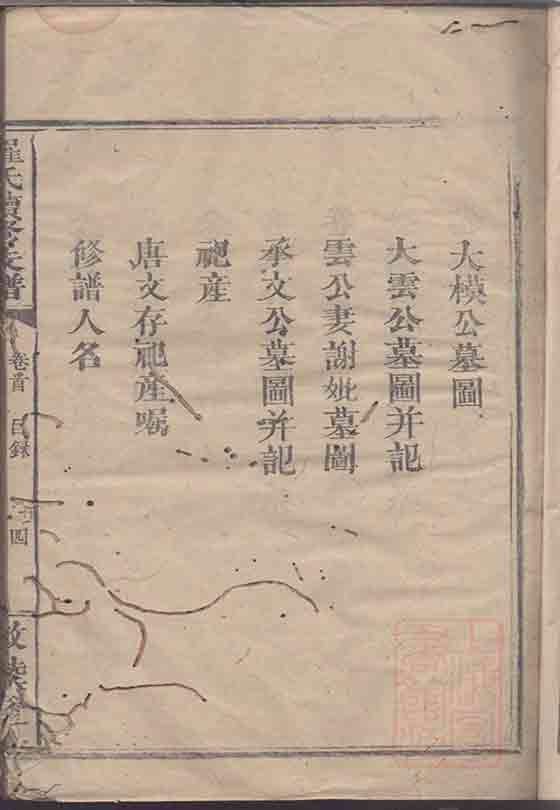 大模公墓圖
大雲公墓圖并記
雲公妻謝妣墓圖
承文公墓圖并記
祀産
唐文存祀産嘱
修譜人名
羅氏續修族譜
卷首 目録
四
敦